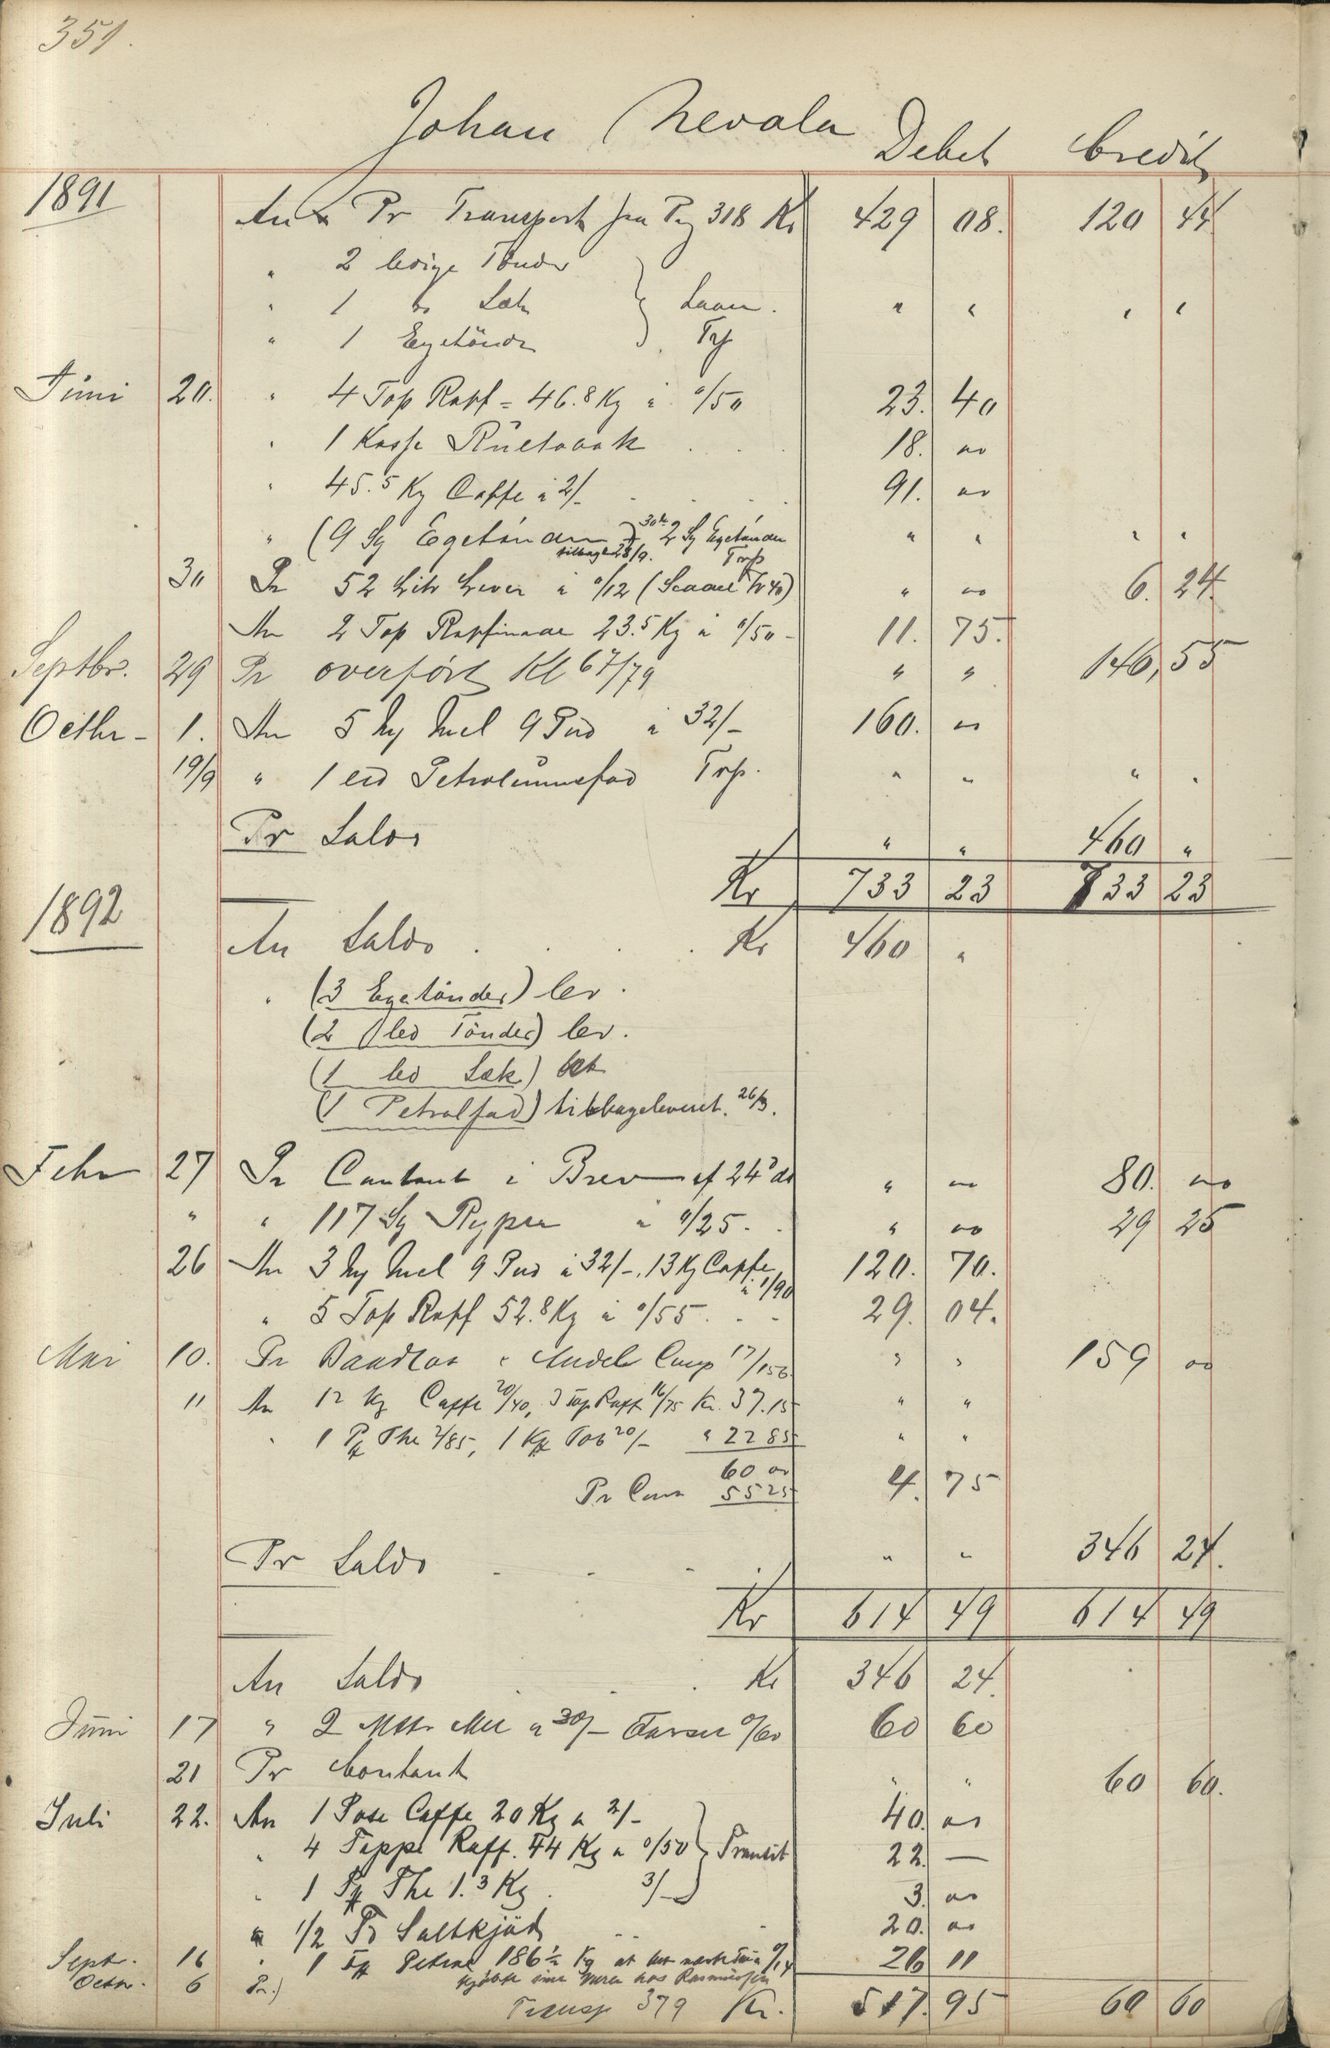 351.
Johan Nevala Debet Credit
1891 An & Pr Transport fra Pag 318 Kr 429 08. 120 44
" 2 ledige Tønder
" 1 do Sæk } Laan. " " " "
" 1 Egetønde Trp
Juni 20. " 4 Top Raff = 46.8 Kg a 0/50 23. 40
" 1 Kasse Rultobak 18. oo
" 45.5 Kg Caffe a 2/- 91. oo
" (9 Sg Egetønder 30te 2 Sg Egetønder " " " "
tilbage 28/9. Trp
30 Pr 52 Litr Lever a 0/12 " oo 6. 24.
An 2 Top Raffinade 23.5 Kg a 0/50 - 11. 75.
Septbr. 29 Pr overført Kl 67/79 " " 146,55
Octbr - 1. An 5 Mel 9 Pud a 32/- 160. oo
19/9 " 1 led Petroleumsfad Trp. " " " "
Pr Saldo " " 460 "
Kr 733 23 733 23
1892
An Saldo . . . . Kr 460 "
" (3 Egetønder) lev.
(2 led Tønder) lev.
(1 led Sæk)
(1 Petrolfad) tilbageleveret. 26/3.
Febr 27 Pr Contant i Brev af 24 ds " oo 80. oo
" " 117 Sg Ryper a 0/25 - " oo 29 25
26 An 3 Mel 9 Pud a 32/-, 13 Kg Caffe 120. 70.
a 1/90
" 5 Top Raff 52.8 Kg a 0/55 . . - 29. 04.
Mai 10. Pr Andels Comp 17/156 " " 159 oo
11 An 12 Kg Caffe 20/40, 3 Top Raff 16/75 Kr. 37.15 " "
" 1 Pk The 2/85, 1 Tob 20/- " 22 85 " "
60 oo
Pr Cont 55 25 4. 75
Pr Saldo . . . . " " 346 24.
Kr 614 49 614 49
An Saldo . . Kr 346 24.
Juni 17 " 2 Mtr Mel a 30/- 0/60 60 60
21 Pr Contant " " 60 60.
Juli 22. An 1 Pose Caffe 20 Kg a 2/- 40. oo
" 4 Toppe Raff. 44 Kg a 0/50 } Transit 22. —
" 1 Pk The 1.3 Kg . 3/- 3. oo
" 1/2 Td Saltkjød 20. oo
Septr. 16 " 1 Petrol 186 1/2 Kg 0/14 26 11
Octbr. 6 Pr.) kjøbte sine Varer hos Rasmussen
Transp 379 Kr. 517. 95 60 60